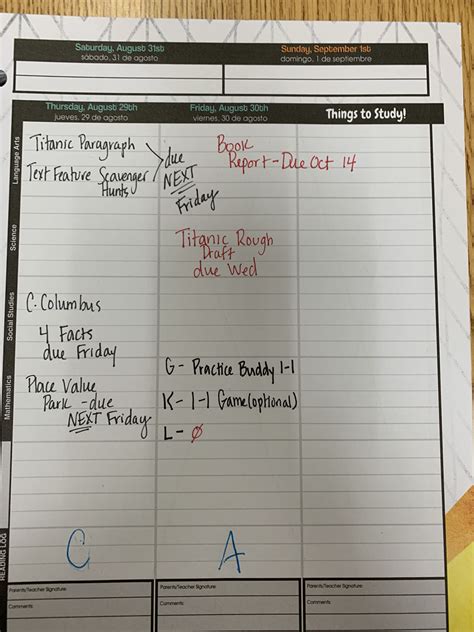 Saturday, August 31st
sábado, 31 de agosto
Sunday, September 1st
domingo, 1 de septiembre
Thursday, August 29th
jueves, 29 de agosto
Friday, August 30th
viernes, 30 de agosto
Things to Study!
Language Arts
Titanic Paragraph
Text Feature Scavenger
Hunts
due
NEXT
Friday
Book
Report - Due Oct 14
Science
Titanic Rough
Draft
due Wed
Social Studies
C. Columbus
4 Facts
due Friday
Mathematics
Place Value
Park - due
NEXT Friday
G - Practice Buddy 1-1
K - 1-1 Game (optional)
L - Ø
READING LOG
C
A
Parents/Teacher Signature:
Comments:
Parents/Teacher Signature:
Comments:
Parents/Teacher Signature:
Comments: